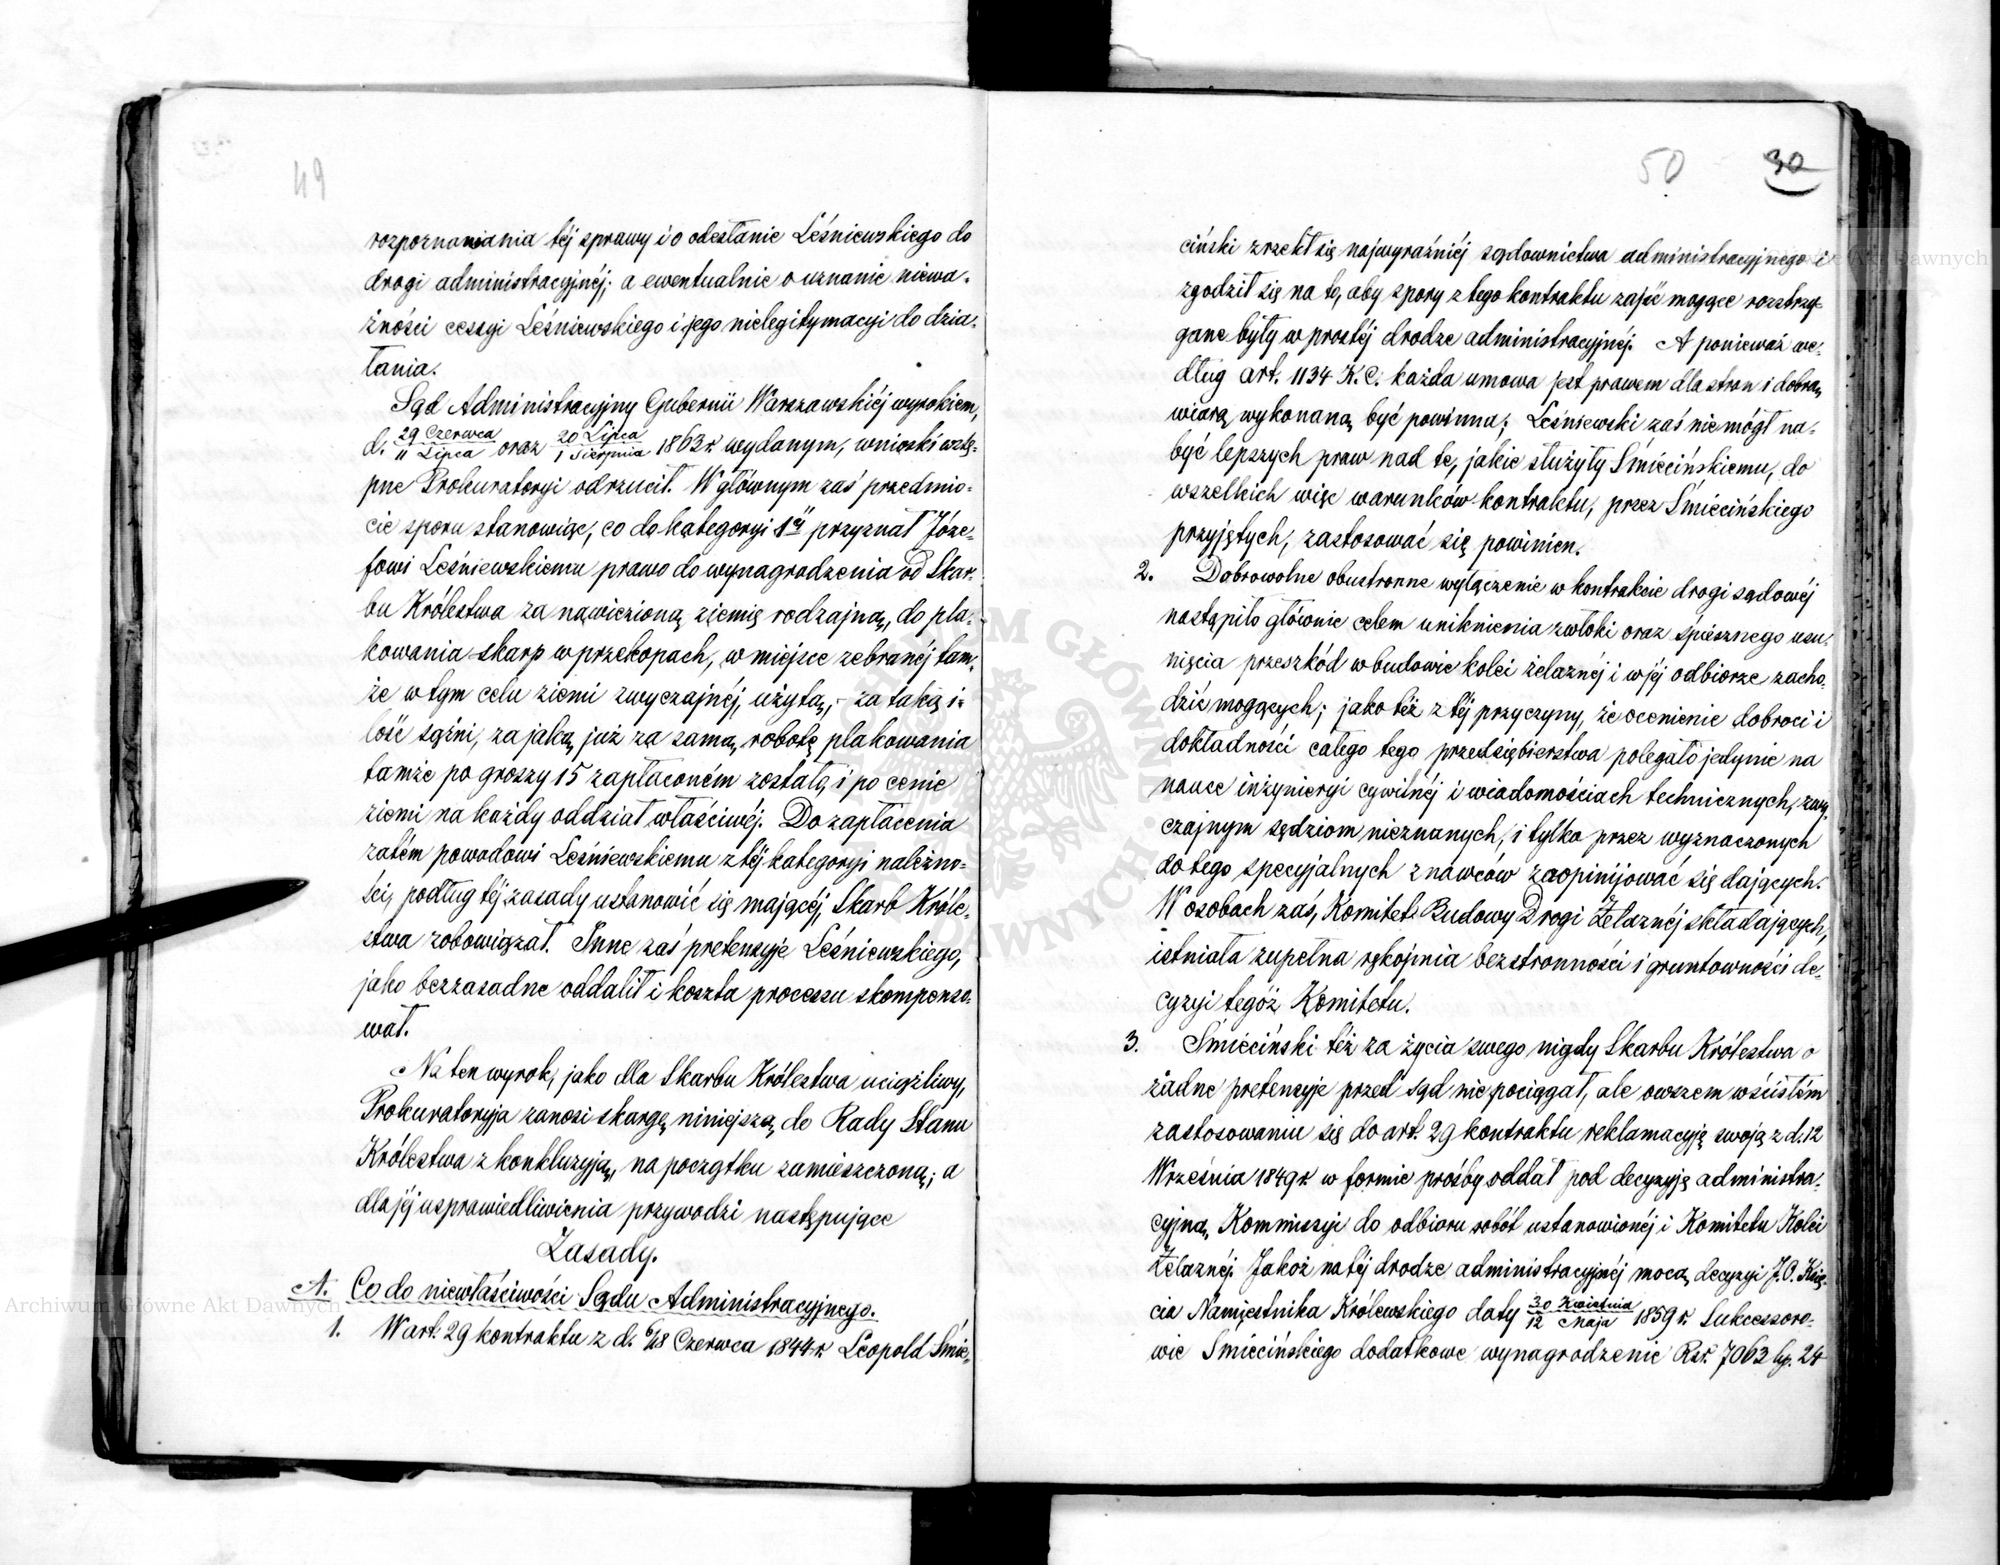 49
rozpoznawania téj sprawy i o odesłanie Leśniewskiego do
drogi administracyjnéj; a ewentualnie o uznanie niewa-
żności cessyi Leśniewskiego i jego nielegitymacyi do dzia-
łania.
Sąd Administracyjny Gubernii Warszawskiéj wyrokiem,
d. 29 Czerwca / 11 Lipca oraz 20 Lipca / 1 Sierpnia 1863 r. wydanym, wnioski wstę-
pne Prokuratoryi odrzucił. W głównym zaś przedmio-
cie sporu stanowiąc, co do kategoryi 1éj przyznał Józe-
fowi Leśniewskiemu prawo do wynagrodzenia od Skar-
bu Królestwa za nawiezioną ziemię rodzajną, do pla-
kowania skarp w przekopach, w miejsce zebranéj tam-
że w tym celu ziemi zwyczajnéj, użytą, - za taką i-
lość sążni, za jaką już za samą robotę plakowania
tamże po groszy 15 zapłaconém zostało, i po cenie
ziemi na każdy oddział właściwéj. Do zapłacenia
zatém powodowi Leśniewskiemu z téj kategoryi należno-
ści, podług téj zasady ustanowić się mającéj, Skarb Króle-
stwa zobowiązał. Inne zaś pretensyje Leśniewskiego,
jako bezzasadne oddalił i koszta processu skompenso-
wał.
Na ten wyrok, jako dla Skarbu Królestwa uciążliwy,
Prokuratoryja zanosi skargę niniejszą do Rady Stanu
Królestwa z konkluzyją, na początku zamieszczoną; a
dla jéj usprawiedliwienia przywodzi następujące
Zasady.
A. Co do niewłaściwości Sądu Administracyjnego.
1. W art. 29 kontraktu z d. 6/18 Czerwca 1844 r. Leopold Śmie-
50 30
ciński zrzekł się najwyraźniéj sądownictwa administracyjnego i
zgodził się na to, aby spory z tego kontraktu zajść mogące rozstrzy-
gane były w prostéj drodze administracyjnéj. A ponieważ we-
dług art. 1134 K.C. każda umowa jest prawem dla stron i dobrą
wiarą wykonaną być powinna; Leśniewski zaś nie mógł na-
być lepszych praw nad te, jakie służyły Śmiécińskiemu, do
wszelkich więc warunków kontraktu, przez Śmiécińskiego
przyjętych, zastosować się powinien.
2. Dobrowolne obustronne wyłączenie w kontrakcie drogi sądowéj
nastąpiło głównie celem uniknienia zwłoki oraz śpiesznego usu-
nięcia przeszkód w budowie kolei żelaznéj i w jéj odbiorze zacho-
dzić mogących; jako téż z téj przyczyny, że ocenienie dobroci i
dokładności całego tego przedsiębierstwa polegało jedynie na
nauce inżynieryi cywilnéj i wiadomościach technicznych, zwy-
czajnym sędziom nieznanych, i tylko przez wyznaczonych
do tego specyjalnych znawców zaopinijować się dających.
W osobach zaś, Komitet Budowy Drogi Żelaznéj składających,
istniała zupełna rękojmia bezstronności i gruntowności de-
cyzyi tegóż Komitetu.
3. Śmiéciński téż za życia swego nigdy Skarbu Królestwa o
żadne pretensyje przed sąd nie pociągał, ale owszem w ścisłém
zastosowaniu się do art. 29 kontraktu reklamacyję swoją z d. 12
Września 1849 r. w formie prośby oddał pod decyzyję administra-
cyjną, Kommissyi do odbioru robót ustanowionéj i Komitetu Kolei
Żelaznéj. Jakoż na téj drodze administracyjnéj mocą decyzyi J.O. Księ-
cia Namiestnika Królewskiego daty 30 Kwietnia / 12 Maja 1859 r. Sukcessoro-
wie Śmiécińskiego dodatkowe wynagrodzenie Rsr. 7063 kp. 24
Archiwum Główne Akt Dawnych